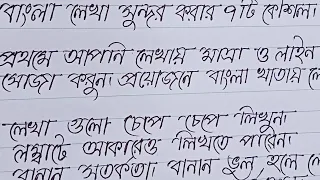 বাংলা লেখা সুন্দর করার ৭টি কৌশল।
প্রথমে আপনি লেখায় মাত্রা ও লাইন
সোজা করুন। প্রয়োজনে বাংলা খাতায় লে
লেখা গুলো চেপে চেপে লিখুন।
লম্বাটে আকারেও লিখতে পারেন।
বানান সতর্কতা বানান ভুল হলে লে